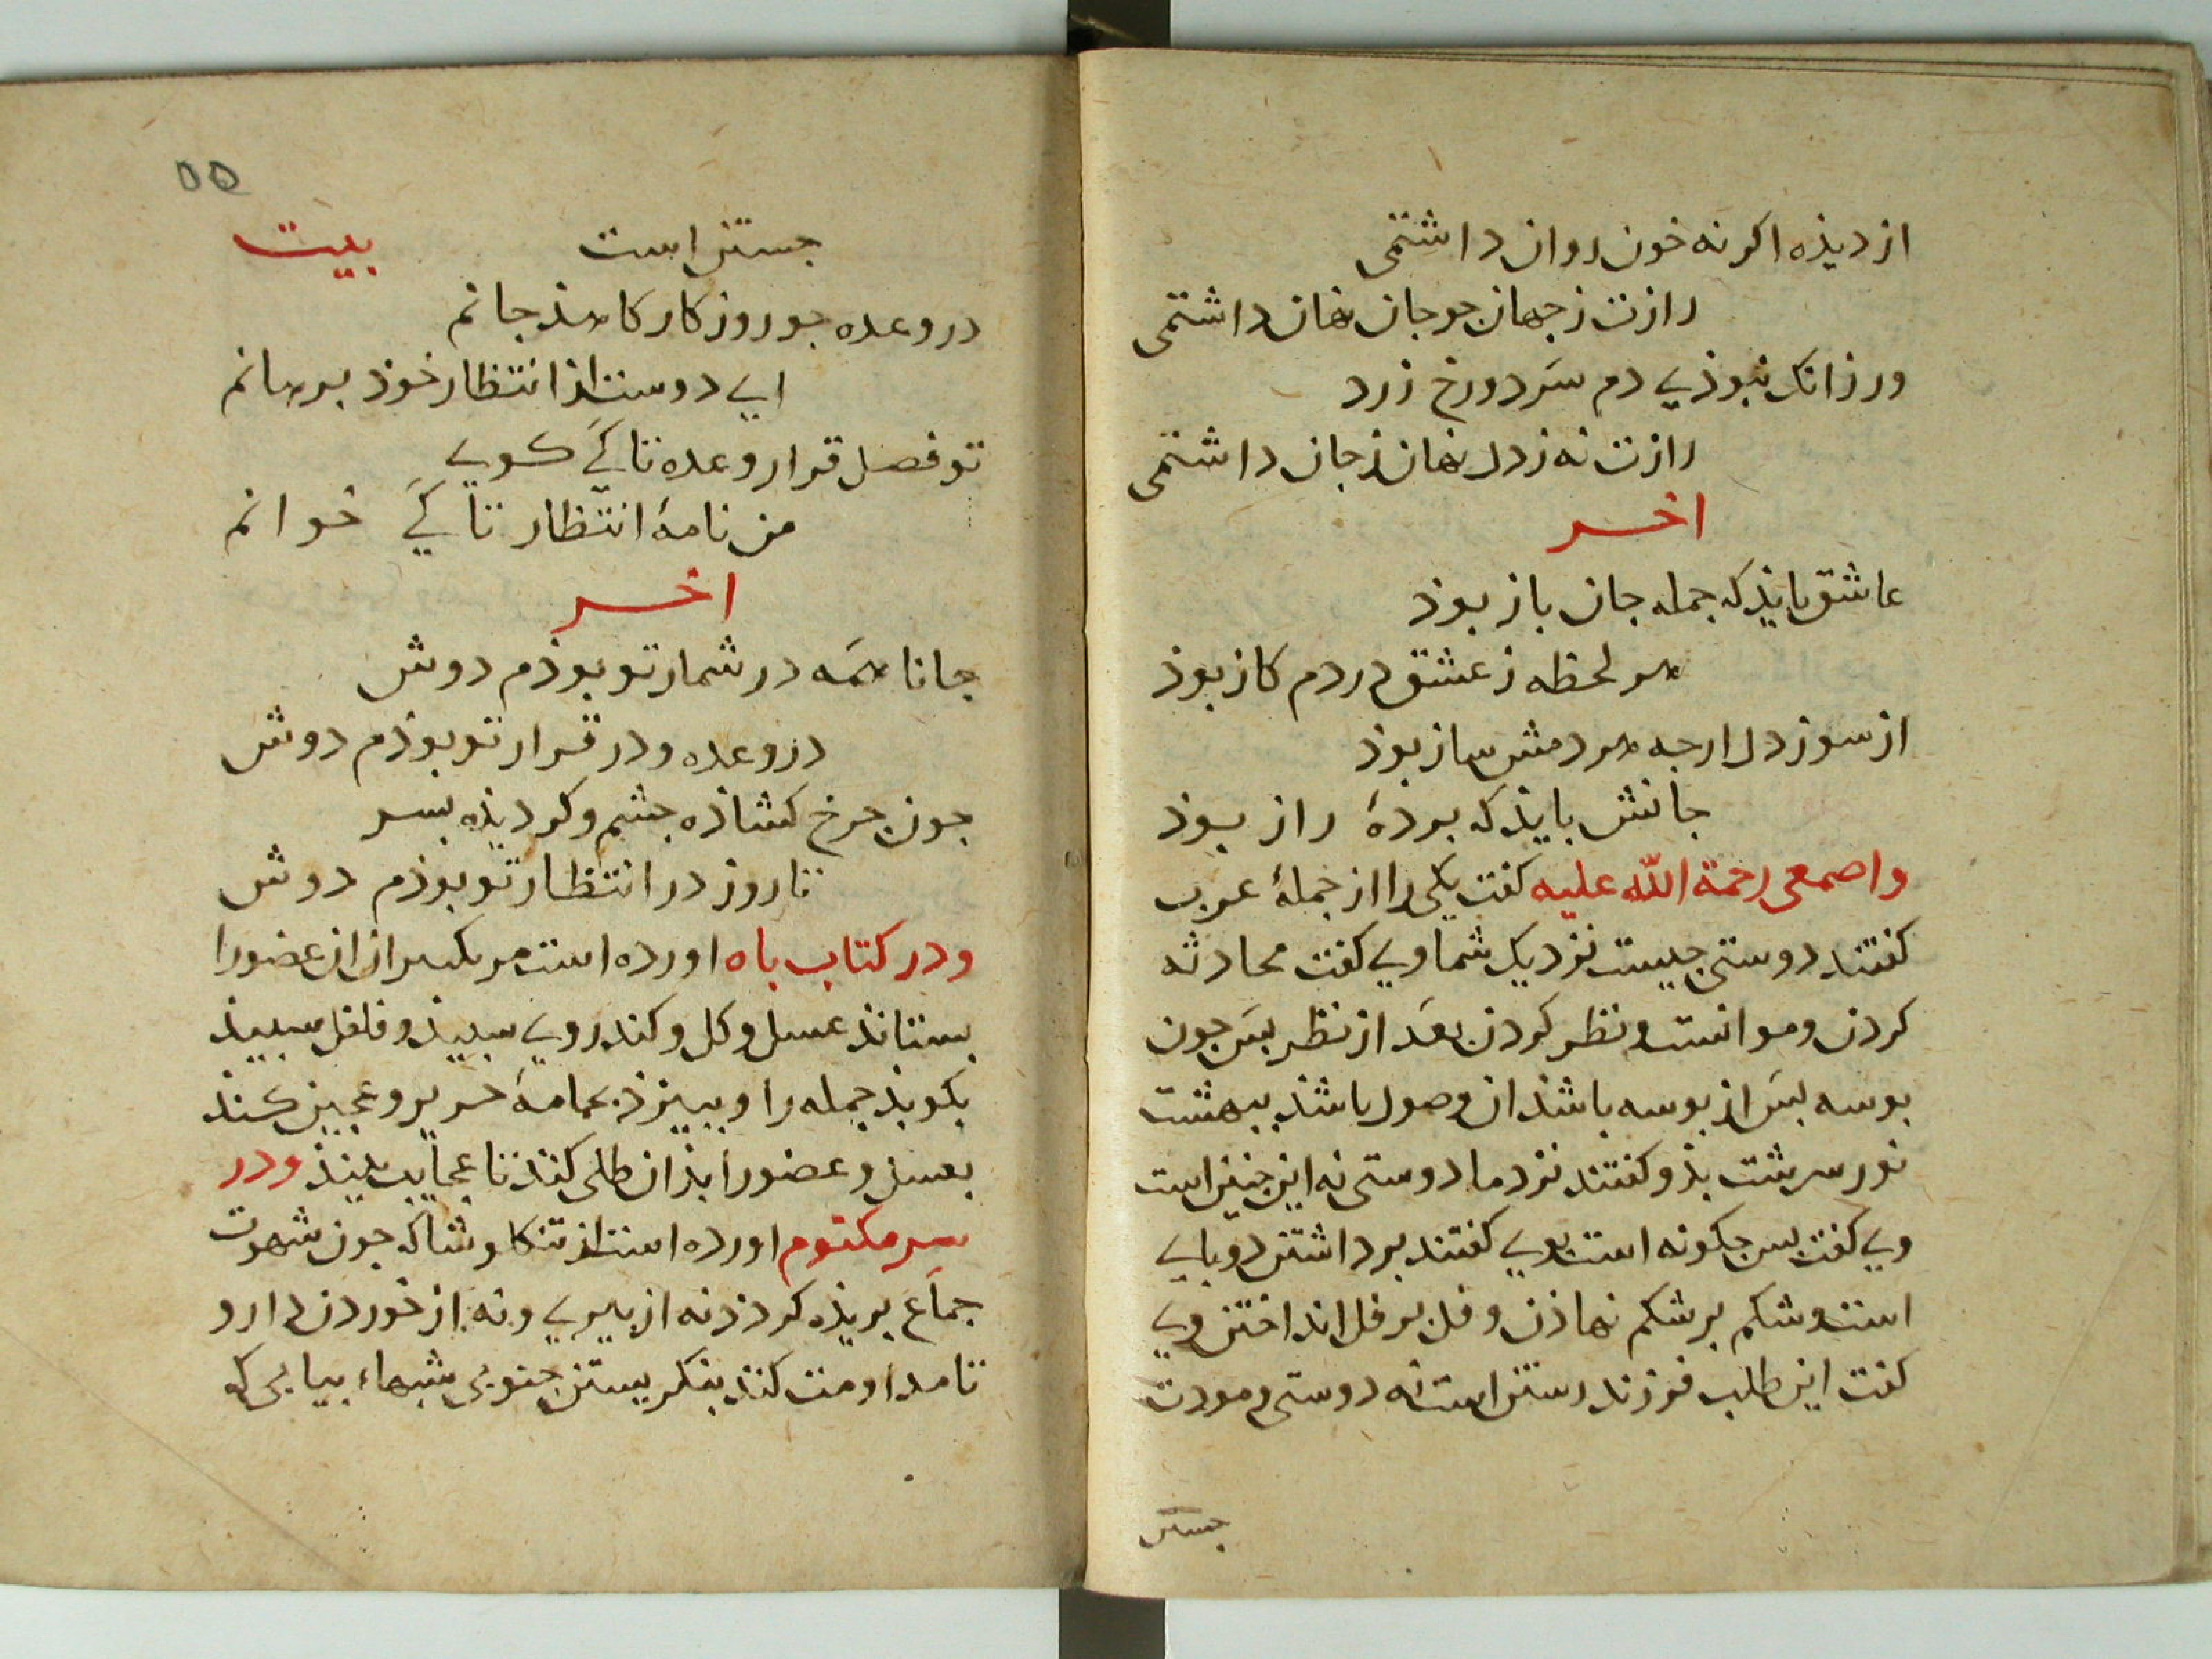 از دیذه اکر نه خون روان داشتمی
رازت ز جهان جو جان نهان داشتمی
ور زانک نبوذی دم سرد و رخ زرد
رازت نه ز دل نهان ز جان داشتمی
اخر
عاشق بایذ که جمله جان باز بوذ
هر لحظه ز عشق در دم کاز بوذ
از سوز دل ارجه هر دمش ساز بوذ
جانش بایذ که بردهٔ راز بوذ
واصمعی رحمة الله علیه کفت یکی را از جملهٔ عرب
کفتند دوستی جیست نزدیک شما وی کفت محادثه
کردن و موانست و نظر کردن بعد از نظر بس جون
بوسه بس از بوسه باشذ ان وصول باشذ ببهشت
نور سرشت بذو کفتند نزد ما دوستی نه این جنین است
وی کفت بس جکونه است بوی کفتند برداشتن دو بای
است و شکم بر شکم نهاذن و فل بر فل انداختن وی
کفت این طلب فرزند رستن است نه دوستی و مودت
جستن
٥٥
جستن است بیت
در وعده جو روزکار کاهذ جانم
ای دوست از انتظار خوذ برهانم
تو فصل قرار وعده تا کی کویی
من نامهٔ انتظار تا کی خوانم
اخر
جانا همه در شمار تو بوذم دوش
در وعده و در قرار تو بوذم دوش
جون جرخ کشاذه جشم و کردیذه بسر
تا روز در انتظار تو بوذم دوش
ودر کتاب باه اورده است مر بکسر از ان عضو را
بستانذ عسل وکل وکندروی سبیذ و فلفل سبیذ
بکوبذ جمله را و ببیزذ بجامهٔ حریر و عجین کند
بعسل و عضو را بذان طلی کند تا عجایب بینذ ودر
سر مکتوم اورده است از تنکلوشا که جون شهوت
جماع بریذه کردذ نه از بیری و نه از خوردن دارو
تا مداومت کند بنکریستن جنوبی شبهاء بیابی که